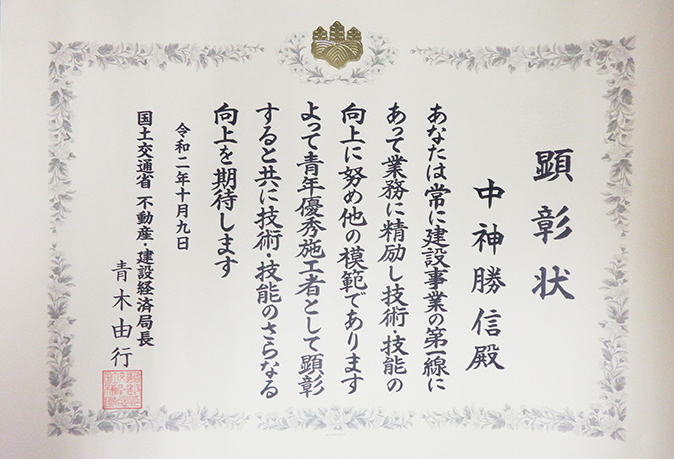 顕彰状
中神勝信殿
あなたは常に建設事業の第一線に
あって業務に精励し技術・技能の
向上に努め他の模範であります
よって青年優秀施工者として顕彰
すると共に技術・技能のさらなる
向上を期待します
令和二年十月九日
国土交通省 不動産・建設経済局長
青木由行